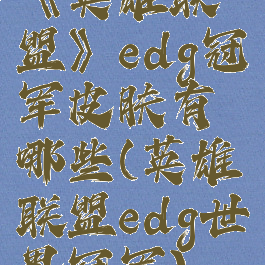 《英雄联
盟》edg冠
军皮肤有
哪些(英雄
联盟edg世
界冠军)